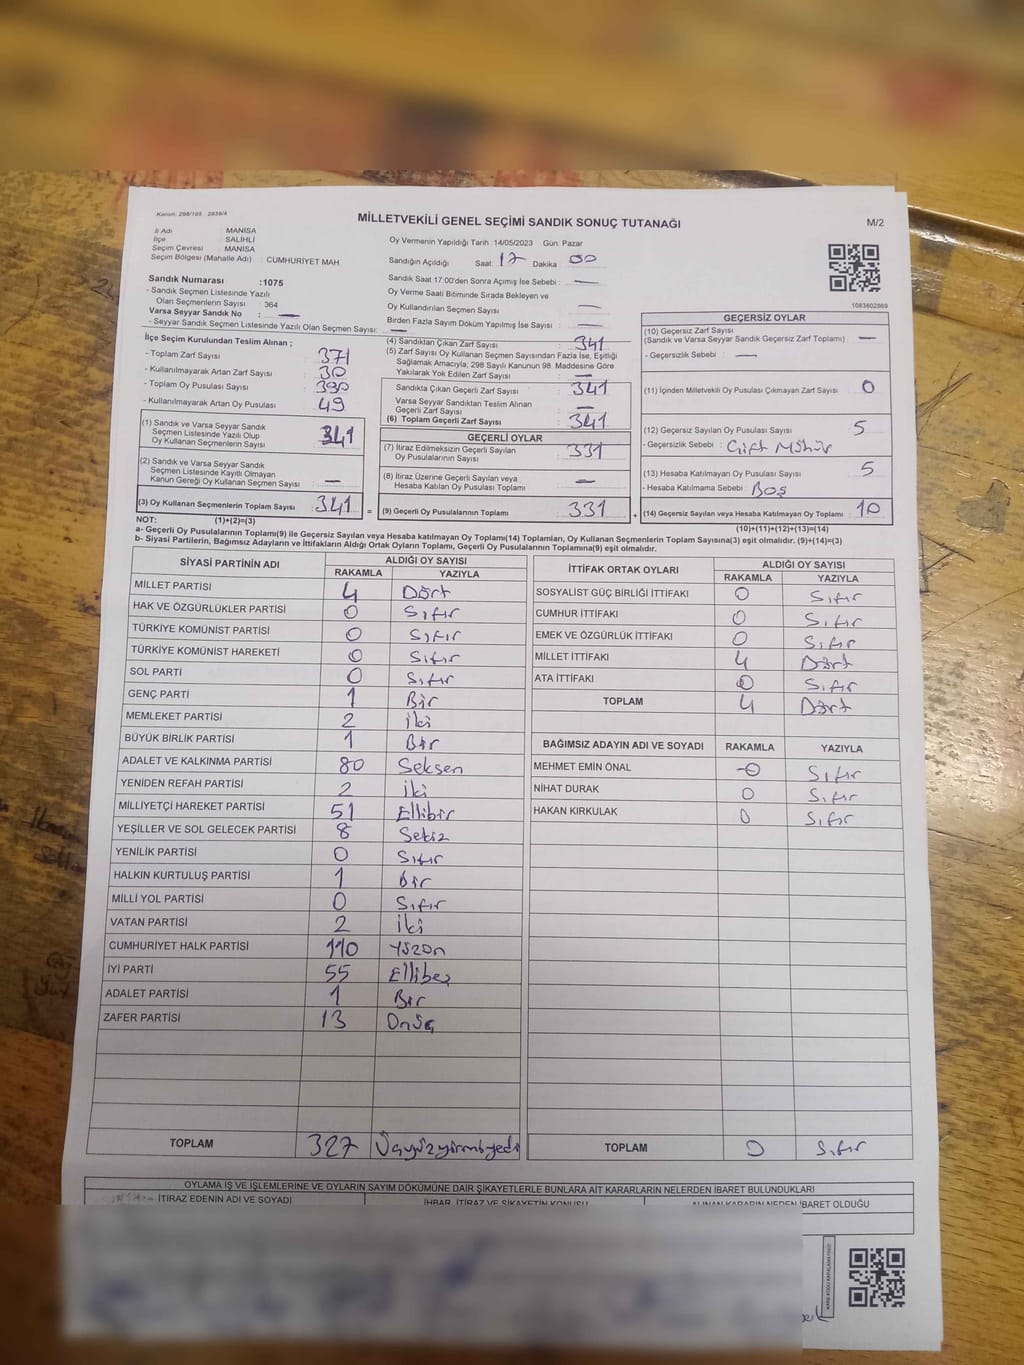 Kanun: 298/105 : 2839/4
MİLLETVEKİLİ GENEL SEÇİMİ SANDIK SONUÇ TUTANAĞI
M/2
İl Adı MANİSA
İlçe SALİHLİ
Seçim Çevresi MANİSA
Seçim Bölgesi (Mahalle Adı) : CUMHURİYET MAH.
Oy Vermenin Yapıldığı Tarih :14/05/2023 Gün: Pazar
Sandığın Açıldığı Saat: 17 Dakika: 00
Sandık Saat 17.00'den Sonra Açılmış İse Sebebi : —
Oy Verme Saati Bitiminde Sırada Bekleyen ve
Oy Kullandırılan Seçmen Sayısı : —
Birden Fazla Sayım Döküm Yapılmış İse Sayısı : —
1083602869
Sandık Numarası :1075
- Sandık Seçmen Listesinde Yazılı
Olan Seçmenlerin Sayısı : 364
Varsa Seyyar Sandık No : —
- Seyyar Sandık Seçmen Listesinde Yazılı Olan Seçmen Sayısı: —
İlçe Seçim Kurulundan Teslim Alınan ;
- Toplam Zarf Sayısı : 371
- Kullanılmayarak Artan Zarf Sayısı : 30
- Toplam Oy Pusulası Sayısı : 390
- Kullanılmayarak Artan Oy Pusulası : 49
(1) Sandık ve Varsa Seyyar Sandık
Seçmen Listesinde Yazılı Olup
Oy Kullanan Seçmenlerin Sayısı : 341
(2) Sandık ve Varsa Seyyar Sandık
Seçmen Listesinde Kayıtlı Olmayan
Kanun Gereği Oy Kullanan Seçmen Sayısı : —
(3) Oy Kullanan Seçmenlerin Toplam Sayısı : 341 =
(4) Sandıktan Çıkan Zarf Sayısı : 341
(5) Zarf Sayısı Oy Kullanan Seçmen Sayısından Fazla İse, Eşitliği
Sağlamak Amacıyla, 298 Sayılı Kanunun 98. Maddesine Göre
Yakılarak Yok Edilen Zarf Sayısı : —
Sandıkta Çıkan Geçerli Zarf Sayısı : 341
Varsa Seyyar Sandıktan Teslim Alınan
Geçerli Zarf Sayısı : —
(6) Toplam Geçerli Zarf Sayısı : 341
GEÇERLİ OYLAR
(7) İtiraz Edilmeksizin Geçerli Sayılan
Oy Pusulalarının Sayısı : 331
(8) İtiraz Üzerine Geçerli Sayılan veya
Hesaba Katılan Oy Pusulası Toplamı : —
(9) Geçerli Oy Pusulalarının Toplamı : 331 +
GEÇERSİZ OYLAR
(10) Geçersiz Zarf Sayısı
(Sandık ve Varsa Seyyar Sandık Geçersiz Zarf Toplamı) : —
- Geçersizlik Sebebi : —
(11) İçinden Milletvekili Oy Pusulası Çıkmayan Zarf Sayısı : 0
(12) Geçersiz Sayılan Oy Pusulası Sayısı : 5
- Geçersizlik Sebebi : Çift Mühür
(13) Hesaba Katılmayan Oy Pusulası Sayısı : 5
- Hesaba Katılmama Sebebi : Boş
(14) Geçersiz Sayılan veya Hesaba Katılmayan Oy Toplamı : 10
NOT: (1)+(2)=(3) (10)+(11)+(12)+(13)=(14)
a- Geçerli Oy Pusulaları Toplamı(9) ile Geçersiz Sayılan veya Hesaba katılmayan Oy Toplamı(14) Toplamları, Oy Kullanan Seçmenlerin Toplam Sayısına(3) eşit olmalıdır. (9)+(14)=(3)
b- Siyasi Partilerin, Bağımsız Adayların ve İttifakların Aldığı Ortak Oyların Toplamı, Geçerli Oy Pusulalarının Toplamına(9) eşit olmalıdır.
SİYASİ PARTİNİN ADI ALDIĞI OY SAYISI
RAKAMLA YAZIYLA
MİLLET PARTİSİ 4 Dört
HAK VE ÖZGÜRLÜKLER PARTİSİ 0 Sıfır
TÜRKİYE KOMÜNİST PARTİSİ 0 Sıfır
TÜRKİYE KOMÜNİST HAREKETİ 0 Sıfır
SOL PARTİ 0 Sıfır
GENÇ PARTİ 1 Bir
MEMLEKET PARTİSİ 2 iki
BÜYÜK BİRLİK PARTİSİ 1 Bir
ADALET VE KALKINMA PARTİSİ 80 Seksen
YENİDEN REFAH PARTİSİ 2 İki
MİLLİYETÇİ HAREKET PARTİSİ 51 Ellibir
YEŞİLLER VE SOL GELECEK PARTİSİ 8 Sekiz
YENİLİK PARTİSİ 0 Sıfır
HALKIN KURTULUŞ PARTİSİ 1 bir
MİLLİ YOL PARTİSİ 0 Sıfır
VATAN PARTİSİ 2 iki
CUMHURİYET HALK PARTİSİ 110 yüzon
İYİ PARTİ 55 Ellibeş
ADALET PARTİSİ 1 Bir
ZAFER PARTİSİ 13 Onüç
TOPLAM 327 Üçyüzyirmiyedi
İTTİFAK ORTAK OYLARI ALDIĞI OY SAYISI
RAKAMLA YAZIYLA
SOSYALİST GÜÇ BİRLİĞİ İTTİFAKI 0 Sıfır
CUMHUR İTTİFAKI 0 Sıfır
EMEK VE ÖZGÜRLÜK İTTİFAKI 0 Sıfır
MİLLET İTTİFAKI 4 Dört
ATA İTTİFAKI 0 Sıfır
TOPLAM 4 Dört
BAĞIMSIZ ADAYIN ADI VE SOYADI RAKAMLA YAZIYLA
MEHMET EMİN ÖNAL 0 Sıfır
NİHAT DURAK 0 Sıfır
HAKAN KIRKULAK 0 Sıfır
TOPLAM 0 Sıfır
OYLAMA İŞ VE İŞLEMLERİNE VE OYLARIN SAYIM DÖKÜMÜNE DAİR ŞİKAYETLERLE BUNLARA AİT KARARLARIN NELERDEN İBARET BULUNDUKLARI
İTİRAZ EDENİN ADI VE SOYADI İHBAR, İTİRAZ VE ŞİKAYETİN KONUSU ALINAN KARARIN NEDEN İBARET OLDUĞU